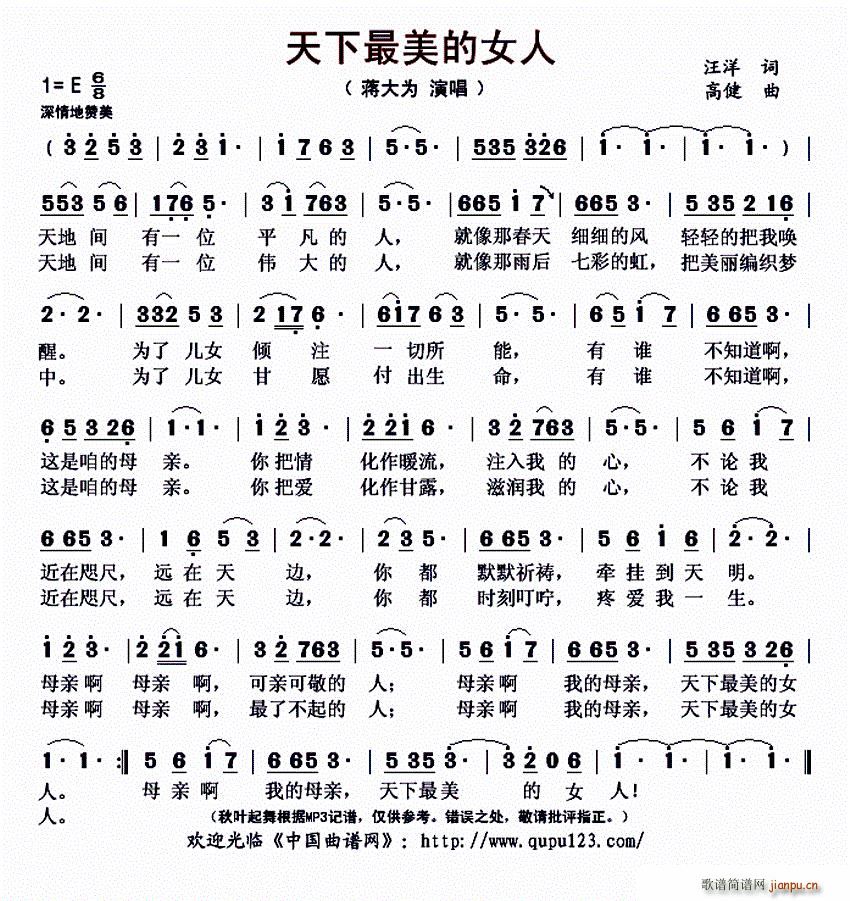 天下最美的女人
1=E 6/8
（蒋大为 演唱）
汪洋 词
高健 曲
深情地赞美
( 3 2 5 3 | 2 3 1· | 1 7 6 3 | 5· 5· | 535 326 | 1· 1· | 1· 1· ) |
553 5 6 | 176 5· | 3 1 763 | 5· 5· | 665 1 7 | 665 3· | 5 35 2 16 |
天地间 有一位 平凡的人， 就像那春天 细细的风 轻轻的把我唤
天地间 有一位 伟大的人， 就像那雨后 七彩的虹， 把美丽编织梦
2· 2· | 332 5 3 | 2 17 6· | 6176 3 | 5· 5· | 6 5 1 7 | 6 65 3· |
醒。 为了儿女 倾注 一切所能， 有谁 不知道啊，
中。 为了儿女 甘愿 付出生命， 有谁 不知道啊，
6 5 3 26 | 1· 1· | 1 2 3· | 2 21 6· | 3 2 763 | 5· 5· | 5 6 1 7 |
这是咱的母亲。 你把情 化作暖流， 注入我的心， 不论我
这是咱的母亲。 你把爱 化作甘露， 滋润我的心， 不论我
6 65 3· | 1 6 5 3 | 2· 2· | 2 3 5· | 6 65 3· | 5 6 1 6 | 2· 2· |
近在咫尺， 远在天边， 你都 默默祈祷， 牵挂到天明。
近在咫尺， 远在天边， 你都 时刻叮咛， 疼爱我一生。
1 2 3· | 2 21 6· | 3 2 763 | 5· 5· | 5 6 1 7 | 6 65 3· | 535 3 26 |
母亲啊 母亲啊， 可亲可敬的人； 母亲啊 我的母亲， 天下最美的女
母亲啊 母亲啊， 最了不起的人； 母亲啊 我的母亲， 天下最美的女
1· 1· :‖ 5 6 1 7 | 6 65 3· | 5 35 3· | 3 2 0 6 | 1· 1· | 1· 1· ‖
人。 母亲啊 我的母亲， 天下最美 的女人！
人。
（秋叶起舞根据MP3记谱，仅供参考。错误之处，敬请批评指正。）
欢迎光临《中国曲谱网》：http://www.qupu123.com/
歌谱简谱网 jianpu.cn